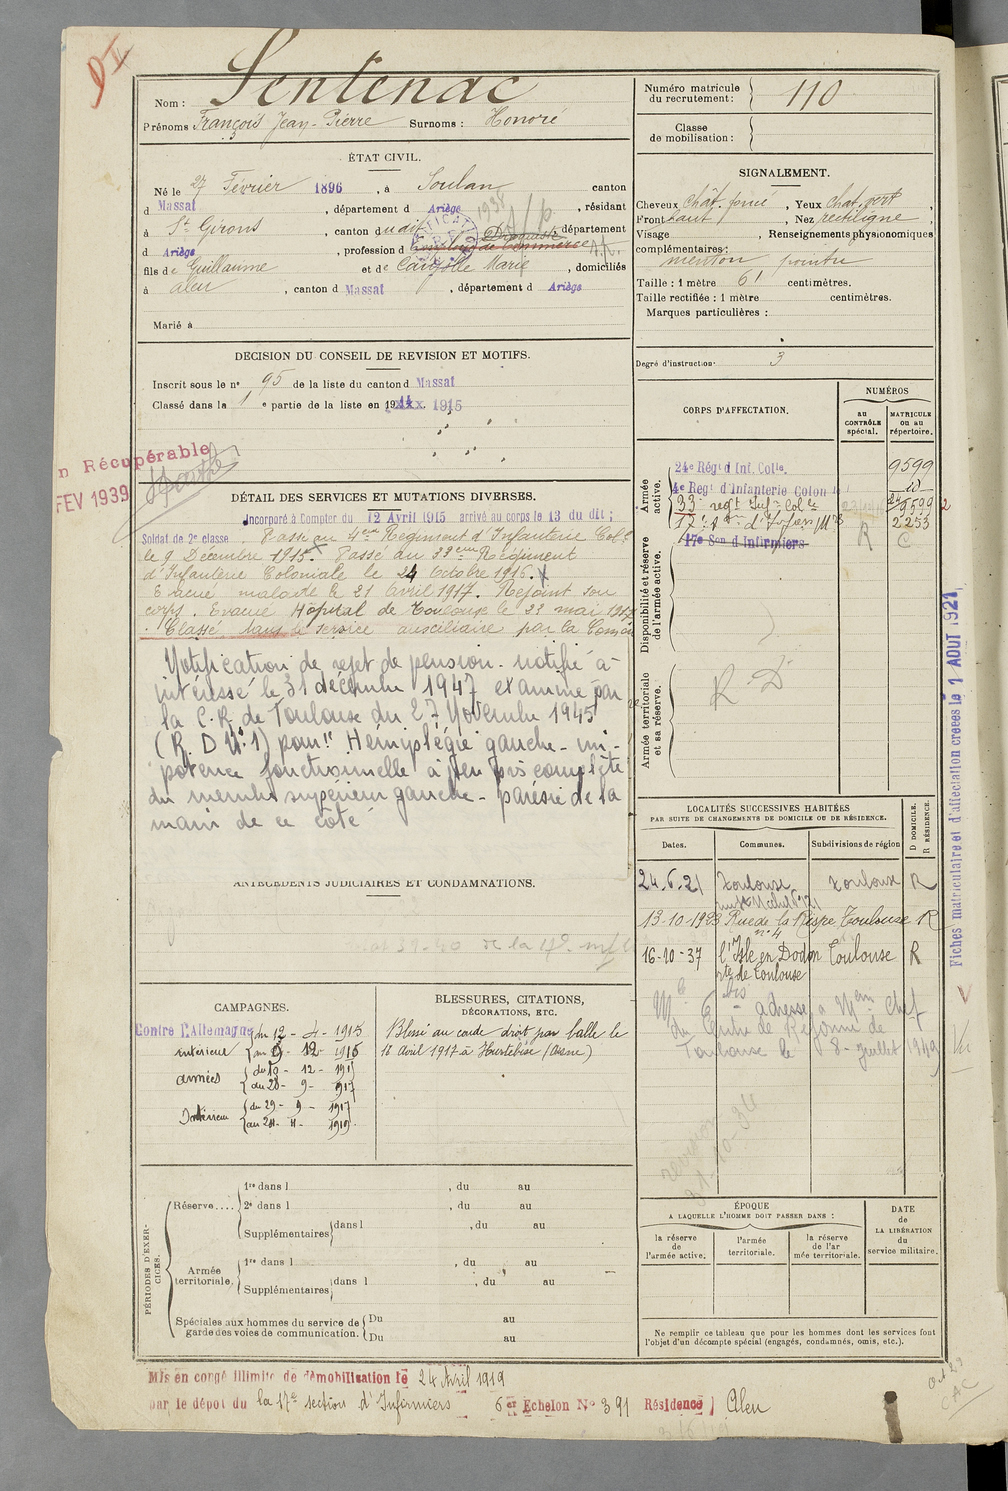 Sentenac
Nom :
Prénoms François Jean-Pierre Surnoms : Honoré
Numéro matricule du recrutement : 110
Classe de mobilisation :
ÉTAT CIVIL.
Né le 27 Février 1896, à Soulan canton
d Massat, département d Ariège, résidant
à St Girons, canton dudit département
d Ariège, profession d Employé de Commerce Droguiste
fils de Guillaume et de Marie, domiciliés
à Aleu, canton d Massat, département d Ariège
Marié à
SIGNALEMENT.
Cheveux chât. foncé, Yeux chat. vert,
Front haut, Nez rectiligne
Visage, Renseignements physionomiques
complémentaires :
menton pointu
Taille : 1 mètre 61 centimètres.
Taille rectifiée : 1 mètre centimètres.
Marques particulières :
Degré d'instruction : 3
DECISION DU CONSEIL DE REVISION ET MOTIFS.
Inscrit sous le n° 95 de la liste du canton d Massat
Classé dans la 1e partie de la liste en 1915
n Récupérable
FEV 1939
DÉTAIL DES SERVICES ET MUTATIONS DIVERSES.
Incorporé à Compter du 12 Avril 1915 arrivé au corps le 13 du dit ;
Soldat de 2e classe. Passé au 4eme Régiment d'Infanterie Colle
le 9 Décembre 1915. Passé au 33eme Régiment
d'Infanterie Coloniale le 24 Octobre 1916.
Evacué malade le 21 Avril 1917. Rejoint son
corps. Evacué Hôpital de Toulouse le 23 mai 1917
Classé dans le service auxiliaire par la Comon
Notification de rejet de pension - notifié à
intéressé le 31 décembre 1947 examiné par
la C.R. de Toulouse du 27 Novembre 1945
(R. D N° 1) pour "Hemiplégie gauche - im-
potence fonctionnelle à peu près complète
du membre supérieur gauche - parésie de la
main de ce côté
ANTÉCÉDENTS JUDICIAIRES ET CONDAMNATIONS.
CORPS D'AFFECTATION.
NUMÉROS
au CONTRÔLE spécial.
MATRICULE ou au répertoire.
Armée active.
24e Régt d Inf. Colle. 9599
4e Regt d'Infanterie Colon le id
33e regt Inf. Colle 9599
17e son d'Infirmiers 2253
17e Son d Infirmiers R C
Disponibilité et réserve de l'armée active.
Armée territoriale et sa réserve.
R D
LOCALITÉS SUCCESSIVES HABITÉES
PAR SUITE DE CHANGEMENTS DE DOMICILE OU DE RÉSIDENCE.
Dates. Communes. Subdivisions de région D DOMICILE. R RÉSIDENCE.
24.6.21 Toulouse Toulouse R
13-10-1923 Rue de la Toulouse R
n° 4
16-10-37 l'Isle en Dodon Toulouse R
rte de Toulouse
adresse à Mem Chef
du Centre de Réforme de
Toulouse le 8 - juillet 1949
Fiches matriculaire et d'affectation créées le 1 AOUT 1921
CAMPAGNES.
Contre l'Allemagne du 12 - 4 - 1915
intérieur au 9 - 12 - 1915
armées du 10 - 12 - 1915
au 28 - 9 - 1917
Intérieur du 29 - 9 - 1917
BLESSURES, CITATIONS, DÉCORATIONS, ETC.
Blessé au coude droit par balle le
16 Avril 1917 à Hurtebise (Aisne)
PÉRIODES D'EXERCICES.
Réserve.... 1re dans l , du au
2e dans l , du au
Supplémentaires dans l , du au
Armée territoriale. 1re dans l , du au
Supplémentaires dans l , du au
Spéciales aux hommes du service de garde des voies de communication. Du au
Du au
ÉPOQUE
A LAQUELLE L'HOMME DOIT PASSER DANS :
la réserve de l'armée active.
l'armée territoriale.
la réserve de l'ar mée territoriale.
DATE de LA LIBÉRATION du service militaire.
Ne remplir ce tableau que pour les hommes dont les services font
l'objet d'un décompte spécial (engagés, condamnés, omis, etc.).
Mis en congé illimité de démobilisation le 24 Avril 1919
par le dépôt du la 17e section d'Infirmiers 6e Echelon N° 391 Résidence Aleu
CAC